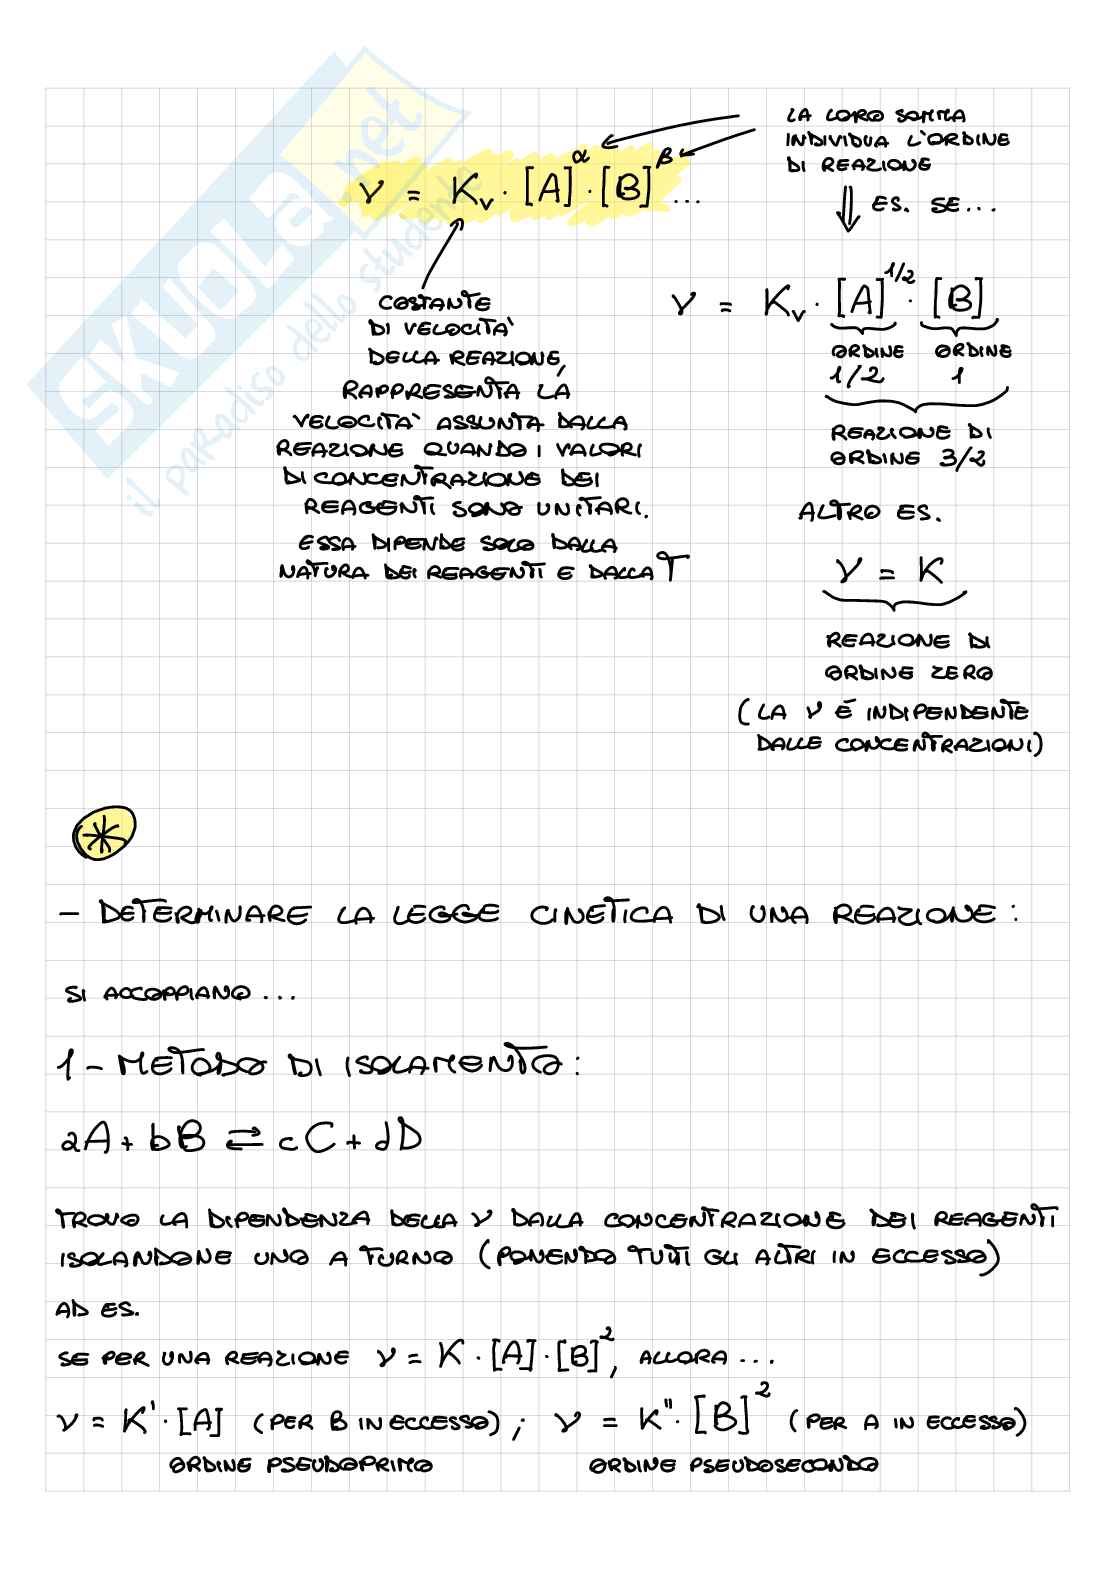 SKUOLA.net
il paradiso dello studente
LA LORO SOMMA
INDIVIDUA L'ORDINE
DI REAZIONE
v = Kv · [A]^α · [B]^β ...
ES. SE...
COSTANTE
DI VELOCITA'
DELLA REAZIONE,
RAPPRESENTA LA
VELOCITA' ASSUNTA DALLA
REAZIONE QUANDO I VALORI
DI CONCENTRAZIONE DEI
REAGENTI SONO UNITARI.
ESSA DIPENDE SOLO DALLA
NATURA DEI REAGENTI E DALLA T
v = Kv · [A]^1/2 · [B]
ORDINE ORDINE
1/2 1
REAZIONE DI
ORDINE 3/2
ALTRO ES.
v = K
REAZIONE DI
ORDINE ZERO
(LA v È INDIPENDENTE
DALLE CONCENTRAZIONI)
*
- DETERMINARE LA LEGGE CINETICA DI UNA REAZIONE:
SI ACCOPPIANO ...
1 - METODO DI ISOLAMENTO:
aA + bB ⇄ cC + dD
TROVO LA DIPENDENZA DELLA v DALLA CONCENTRAZIONE DEI REAGENTI
ISOLANDONE UNO A TURNO (PONENDO TUTTI GLI ALTRI IN ECCESSO)
AD ES.
SE PER UNA REAZIONE v = K · [A] · [B]^2, ALLORA ...
v = K' · [A] (PER B IN ECCESSO) ; v = K'' · [B]^2 (PER A IN ECCESSO)
ORDINE PSEUDOPRIMO ORDINE PSEUDOSECONDO